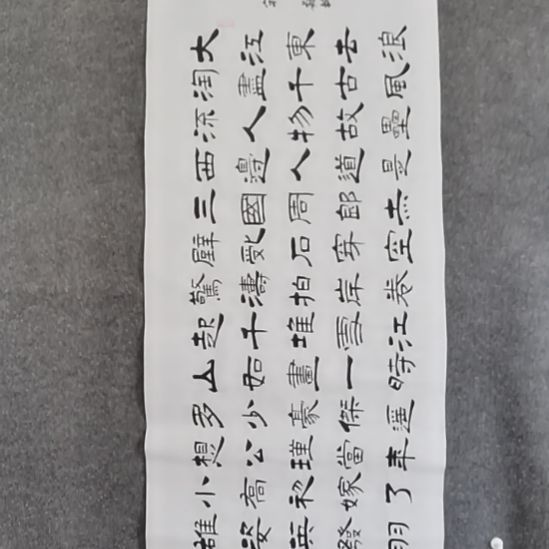 大江東去浪
淘盡千古風
流人物故壘
西邊人道是
三國周郎赤
壁亂石穿空
驚濤拍岸卷
起千堆雪江
山如畫一時
多少豪傑遥
想公瑾當年
小喬初嫁了
雄姿英發羽